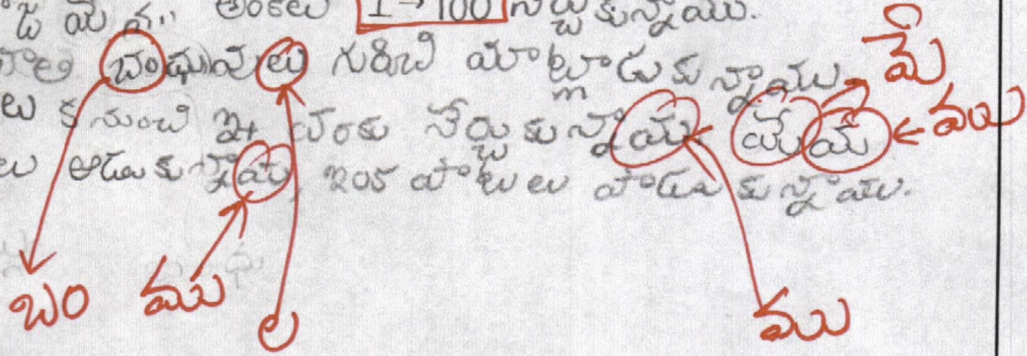 అంకెలు 1→100 నేర్చుకున్నాము.
బంఘువులు గురించి మాట్లాడుకున్నాము. మే
లు క నుంచి వరకు నేర్చుకున్నామ మేమ ← ము
లు ఆడుకున్నామ, పాటలు పాడుకున్నాము.
బం ము ల ము